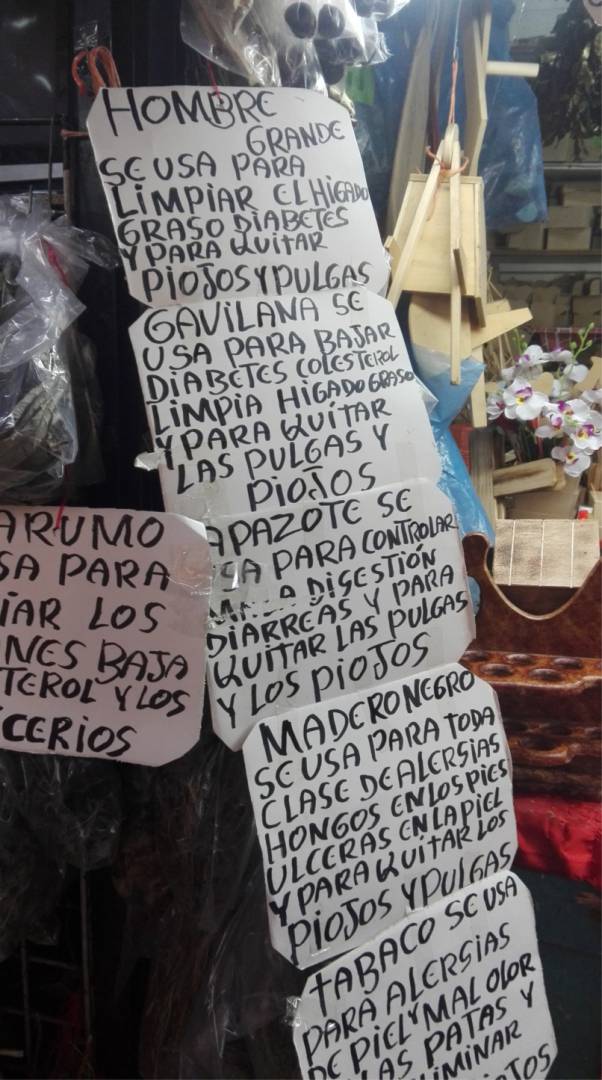 HOMBRE
GRANDE
SE USA PARA
LIMPIAR EL HIGADO
GRASO DIABETES
Y PARA QUITAR
PIOJOS Y PULGAS
GAVILANA SE
USA PARA BAJAR
DIABETES COLESTEROL
LIMPIA HIGADO GRASO
Y PARA QUITAR
LAS PULGAS Y
PIOJOS
APAZOTE SE
PARA CONTROLAR
DIGESTIÓN
DIARREAS Y PARA
QUITAR LAS PULGAS
Y LOS PIOJOS
MADERO NEGRO
SE USA PARA TODA
CLASE DE ALERSIAS
HONGOS EN LOS PIES
ULCERAS EN LA PIEL
Y PARA QUITAR LOS
PIOJOS Y PULGAS
TABACO SE USA
PARA ALERSIAS
DE PIEL Y MAL OLOR
LAS PATAS Y
LIMINAR
ARUMO
SA PARA
IAR LOS
NES BAJA
TEROL Y LOS
CERIOS